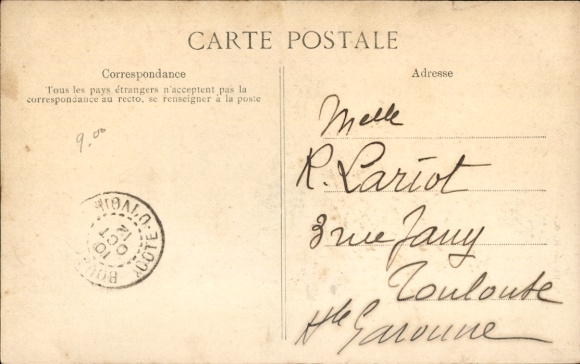 CARTE POSTALE
Correspondance
Tous les pays étrangers n'acceptent pas la
correspondance au recto, se renseigner à la poste
Adresse
9.00
Melle
R. Lariot
3 rue Jany
Toulouse
Hte Garonne
COTE-D'IVOIRE
10
OCT
12